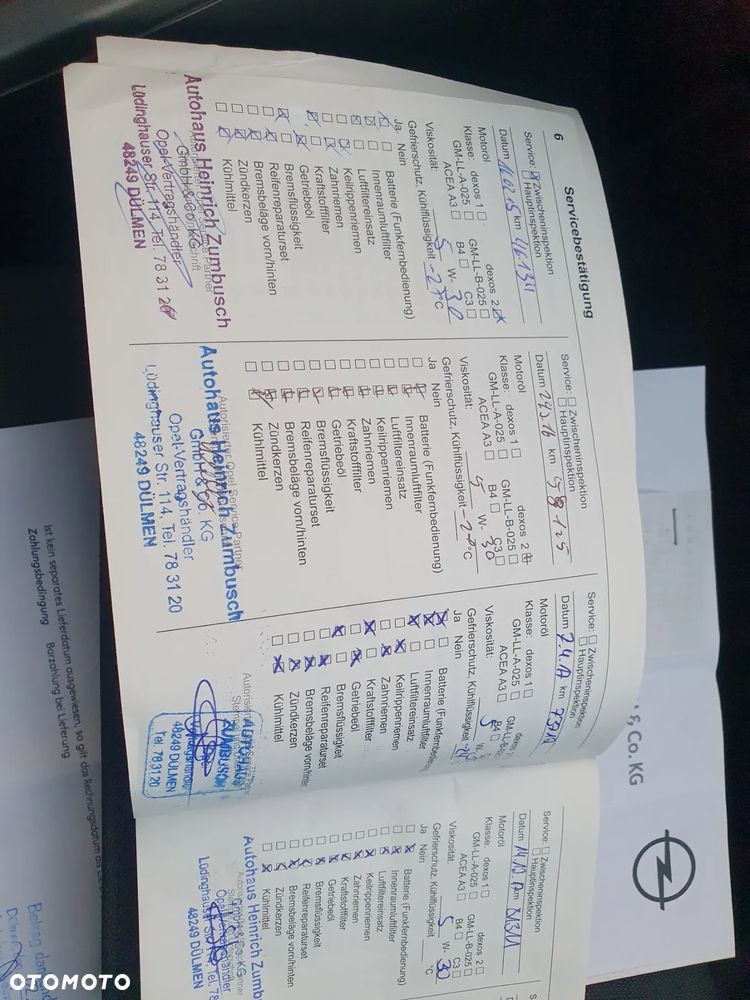 6
Servicebestätigung
Service: Zwischeninspektion
Hauptinspektion
Datum km 46134
Motoröl
Klasse: dexos 1 dexos 2
GM-LL-A-025 GM-LL-B-025
ACEA A3 B4 C3
Viskosität: 5 W- 30
Gefrierschutz, Kühlflüssigkeit -27 °C
Ja Nein
Batterie (Funkfernbedienung)
Innenraumluftfilter
Luftfiltereinsatz
Keilrippenriemen
Zahnriemen
Kraftstofffilter
Getriebeöl
Bremsflüssigkeit
Reifenreparaturset
Bremsbeläge vorn/hinten
Zündkerzen
Kühlmittel
Autohaus Heinrich Zumbusch
GmbH & Co. KG
Opel-Vertragshändler
Lüdinghauser Str. 114, Tel. 78 31 20
48249 DÜLMEN
Service: Zwischeninspektion
Hauptinspektion
Datum 24.3.16 km 58125
Motoröl
Klasse: dexos 1 dexos 2
GM-LL-A-025 GM-LL-B-025
ACEA A3 B4 C3
Viskosität: 5 W- 30
Gefrierschutz, Kühlflüssigkeit °C
Ja Nein
Batterie (Funkfernbedienung)
Innenraumluftfilter
Luftfiltereinsatz
Keilrippenriemen
Zahnriemen
Kraftstofffilter
Getriebeöl
Bremsflüssigkeit
Reifenreparaturset
Bremsbeläge vorn/hinten
Zündkerzen
Kühlmittel
Autorisierter Opel Service Partner
Autohaus Heinrich Zumbusch
GmbH & Co. KG
Opel-Vertragshändler
Lüdinghauser Str. 114, Tel. 78 31 20
48249 DÜLMEN
Service: Zwischeninspektion
Hauptinspektion
Datum 7.4.17 km
Motoröl
Klasse: dexos 1
GM-LL-A-025
ACEA A3 B4
Viskosität: 5 W-
Gefrierschutz, Kühlflüssigkeit
Ja Nein
Batterie
Innenraumluftfilter
Luftfiltereinsatz
Keilrippenriemen
Zahnriemen
Kraftstofffilter
Getriebeöl
Bremsflüssigkeit
Reifenreparaturset
Bremsbeläge vorn/hinten
Zündkerzen
Kühlmittel
AUTOHAUS
ZUMBUSCH
48249 DÜLMEN
Tel. 78 31 20
Service: Zwischeninspektion
Hauptinspektion
Datum km
Motoröl
Klasse: dexos 1 dexos 2
GM-LL-A-025 GM-LL-B-025
ACEA A3 B4 C3
Viskosität: 5 W- 30
Gefrierschutz, Kühlflüssigkeit °C
Ja Nein
Batterie (Funkfernbedienung)
Innenraumluftfilter
Luftfiltereinsatz
Keilrippenriemen
Zahnriemen
Kraftstofffilter
Getriebeöl
Bremsflüssigkeit
Reifenreparaturset
Bremsbeläge vorn/hinten
Zündkerzen
Kühlmittel
Autohaus Heinrich Zumb
GmbH & Co. KG
Opel-Vertragshändler
Lüdinghauser Str. 114, Tel. 78
48249 DÜLMEN
Co. KG
Ist kein separates Lieferdatum ausgewiesen, so gilt das Rechnungsdatum als
Zahlungsbedingung Barzahlung bei Lieferung
Betrag
OTOMOTO